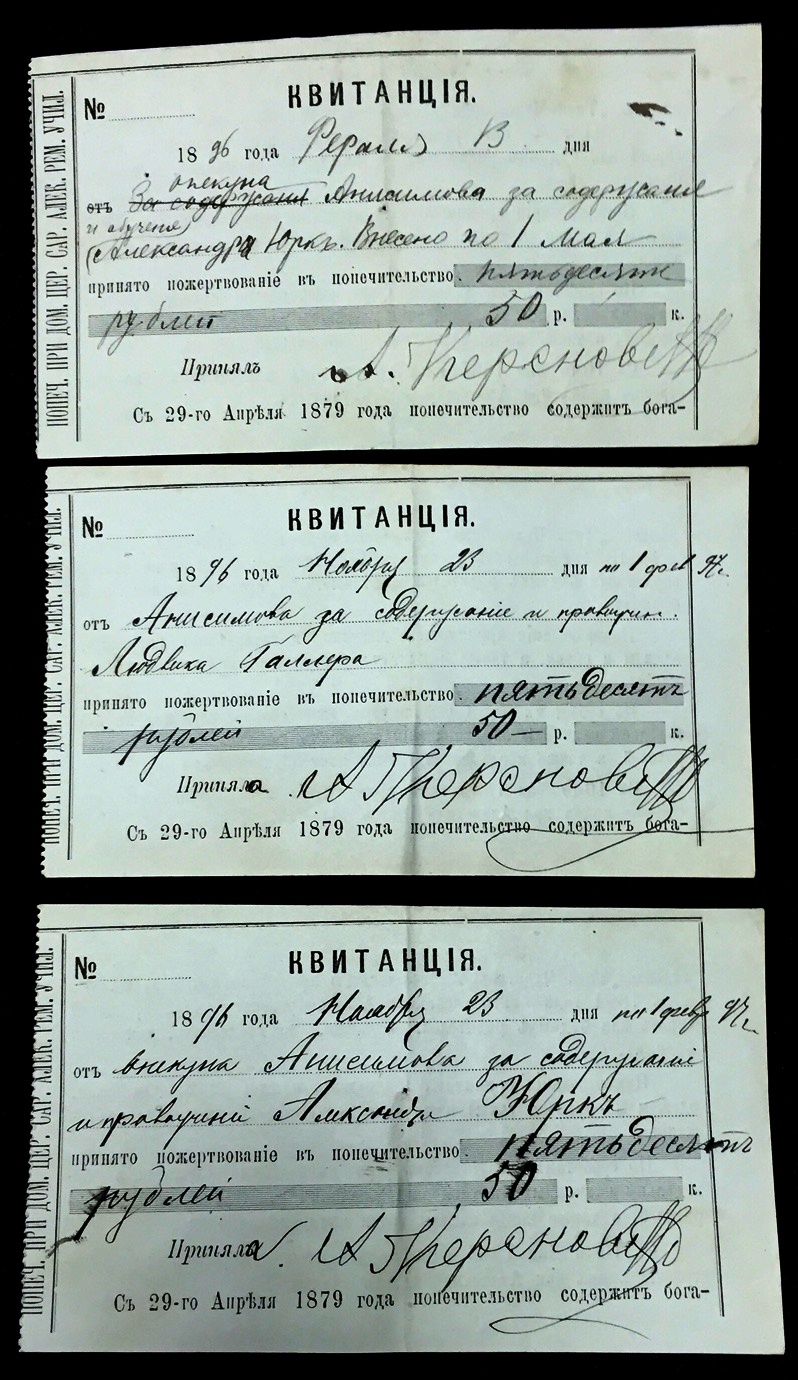 ПОПЕЧ. ПРИ ДОМ. ЦЕР. САР. АЛЕК. РЕМ. УЧИЛ.
КВИТАНЦІЯ.
№
1896 года Февраля 13 дня
опекуна
отъ За содержанія Анисимова за содержаніе
и обученіе
Александра Юркъ. Внесено по 1 Мая
принято пожертвованіе въ попечительство пятьдесятъ
рублей 50 р. к.
Принялъ А.
Съ 29-го Апрѣля 1879 года попечительство содержитъ бога-
ПОПЕЧ. ПРИ ДОМ. ЦЕР. САР. АЛЕК. РЕМ. УЧИЛ.
КВИТАНЦІЯ.
№
1896 года Ноября 23 дня по 1 фев 97 г.
отъ Анисимова за содержаніе и
Людвика Галлера
принято пожертвованіе въ попечительство пятьдесятъ
рублей 50 — р. к.
Приняла А.
Съ 29-го Апрѣля 1879 года попечительство содержитъ бога-
ПОПЕЧ. ПРИ ДОМ. ЦЕР. САР. АЛЕК. РЕМ. УЧИЛ.
КВИТАНЦІЯ.
№
1896 года Ноября 23 дня по 1 февр 97 г.
отъ опекуна Анисимова за содержаніе
и Александра Юркъ
принято пожертвованіе въ попечительство пятьдесятъ
рублей 50 р. к.
Приняла А.
Съ 29-го Апрѣля 1879 года попечительство содержитъ бога-